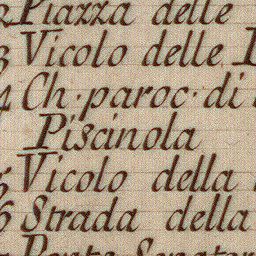 2 Piazza delle
3 Vicolo delle
4 Ch. paroc. di
Piscinola
5 Vicolo della
6 Strada della
Ponte Senator